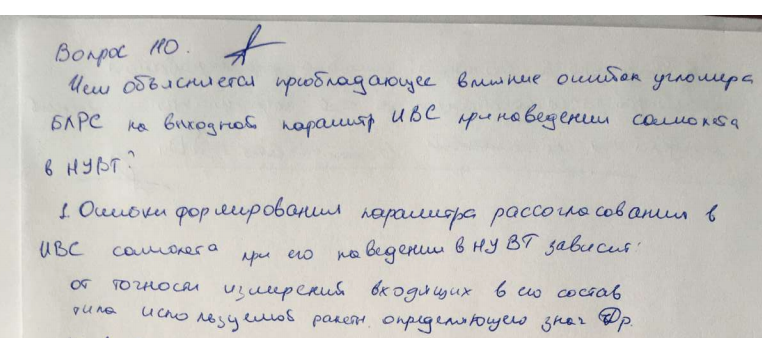 Вопрос 110.
Чем объясняется преобладающее влияние ошибок угломера
БЛРС на выходной параметр ИВС при наведении самолета
в НУВТ?
1. Ошибки формирования параметра рассогласования в
ИВС самолета при его наведении в НУВТ зависит:
от точности измерения входящих в его состав
типа используемой ракеты. определяющего знач Др.